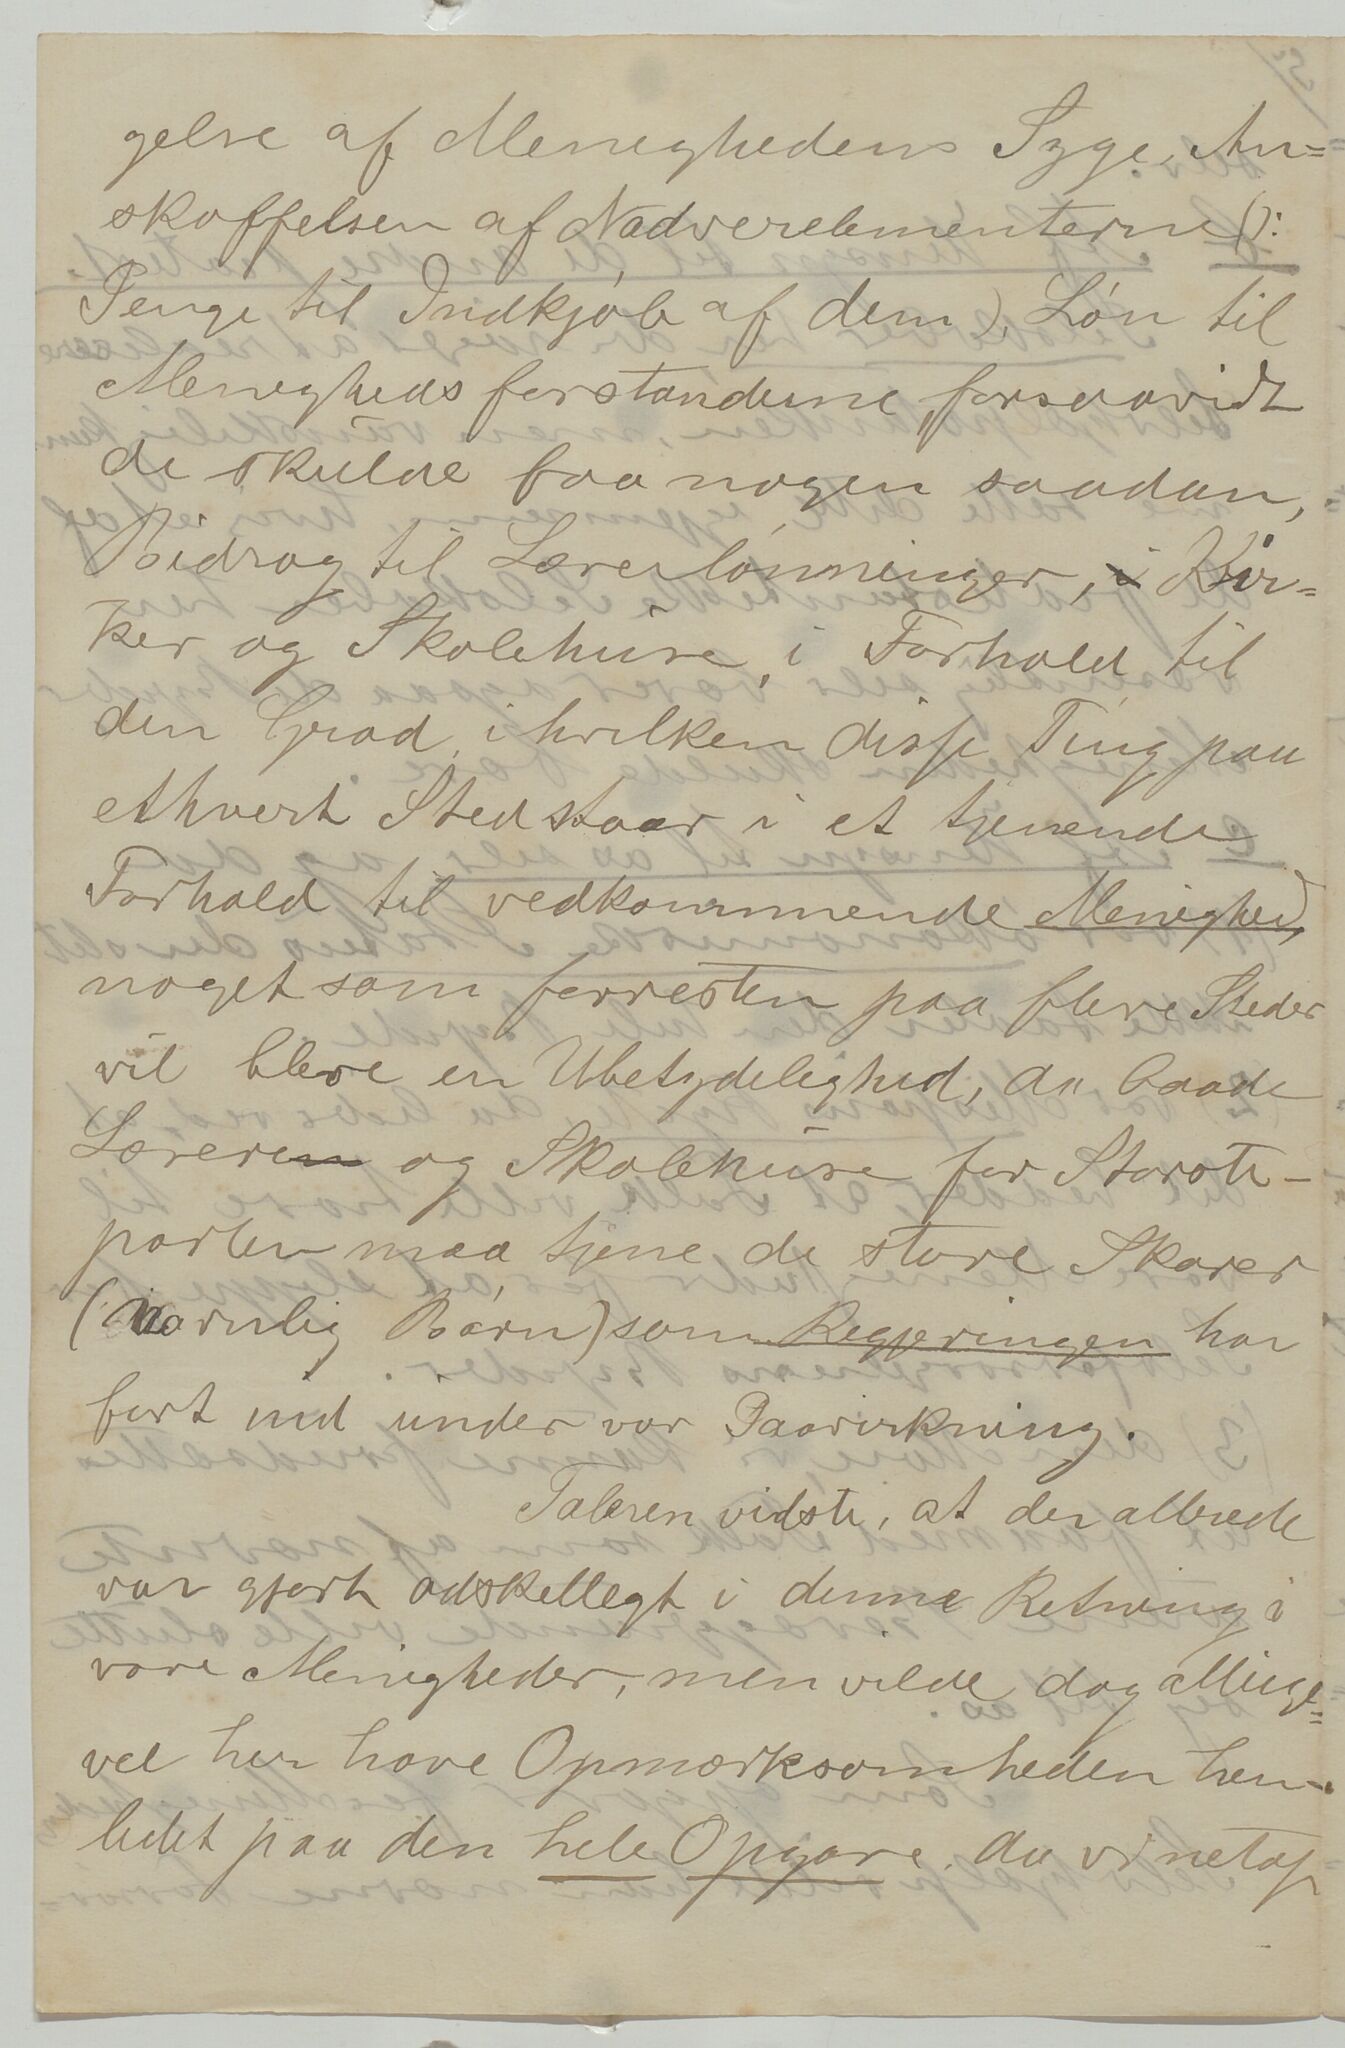 gelse af Menighedens Syge, An=
skaffelsen af Nadverelementerne (ɔ:
Penge til Indkjøb af dem), Løn til
Menighedsforstanderne forsaavidt
de skulde faa nogen saadan,
Bidrag til Lærerlønninger, i Kir=
ker og Skolehuse, i Forhold til
den Grad, i hvilken disse Ting paa
ethvert Sted staar i et tjenende
Forhold til vedkommende Menighed,
noget som forresten paa flere Steder
vil blive en Ubetydelighed, da baade
Læreren og Skolehuse for Største-
parten maa tjene de store Skarer
(navnlig Børn) som Regjeringen har
ført ind under vor Paavirkning.
Taleren vidste, at der allerede
var gjort adskelligt i denne Retning i
vore Menigheder, men vilde dog allige=
vel her have Opmærksomheden hen-
ledet paa den hele Opgave, da vi netop